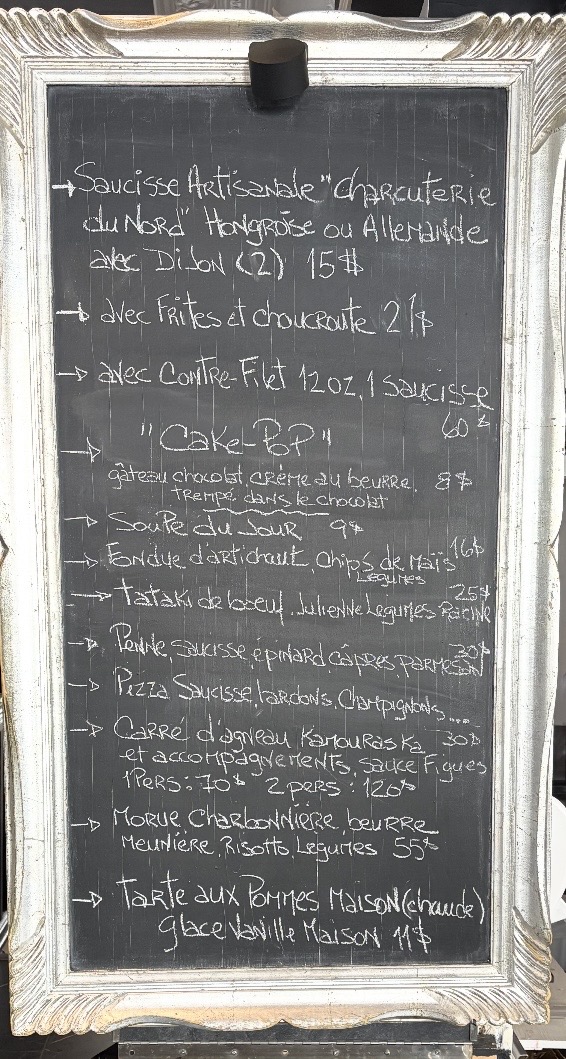 → Saucisse Artisanale "Charcuterie
du Nord" Hongroise ou Allemande
avec Dijon (2) 15$
→ avec Frites et choucroute 21$
→ avec Contre-Filet 12oz, 1 saucisse
60$
→ "Cake-Pop"
gâteau chocolat, crème au beurre, 8$
trempé dans le chocolat
→ Soupe du Jour 9$
→ Fondue d'artichaut, Chips de Maïs 16$
Légumes
→ Tataki de boeuf, Julienne Legumes Racine 25$
→ Penne, saucisse, épinard, câpres, parmesan 30$
→ Pizza Saucisse, lardons, Champignons....
30$
→ Carré d'agneau Kamouraska
et accompagnements, sauce Figues
1 Pers: 70$ 2 pers: 120$
→ Morue Charbonnière, beurre
Meunière, Risotto, Legumes 55$
→ Tarte aux Pommes Maison (chaude)
Glace Vanille Maison 11$